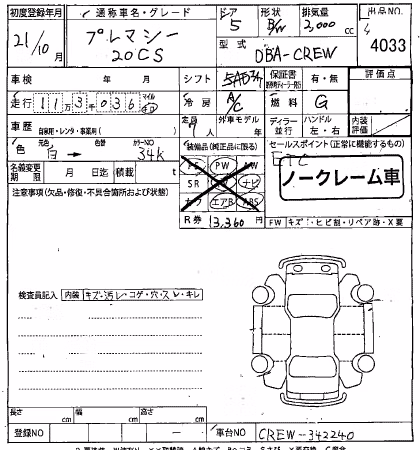 初度登録年月 通称車名・グレード ドア 形状 排気量 出品NO
21/10月 プレマシー 20CS 5 B/W 2,000 cc 4033
型式 DBA-CREW
車検 年 月 シフト 保証書 有・無 評価点
走行 11万3千036 マイル 冷房 A/C 燃料 G
車歴 自家用・レンタ・事業用( ) 定員 7人 外車モデル 年 ディーラー 並行 ハンドル 左・右 内装評価
色 白→ 色番 カラーNO 34K 装備品(純正品に限る) セールスポイント(正常に機能するもの)
名義変更期限 月 日迄 積載 t PS PW AW ETC
注意事項(欠品・修復・不具合箇所および状態) SR ナビ ノークレーム車
カワ エアB ABS
R券 13,360円 FW キズ・ヒビ割・リペア跡・X要
検査員記入 内装 キズ・汚レ・コゲ・穴・スレ・キレ
長さ cm 幅 cm 高さ cm
登録NO － 車台NO CREW-342240